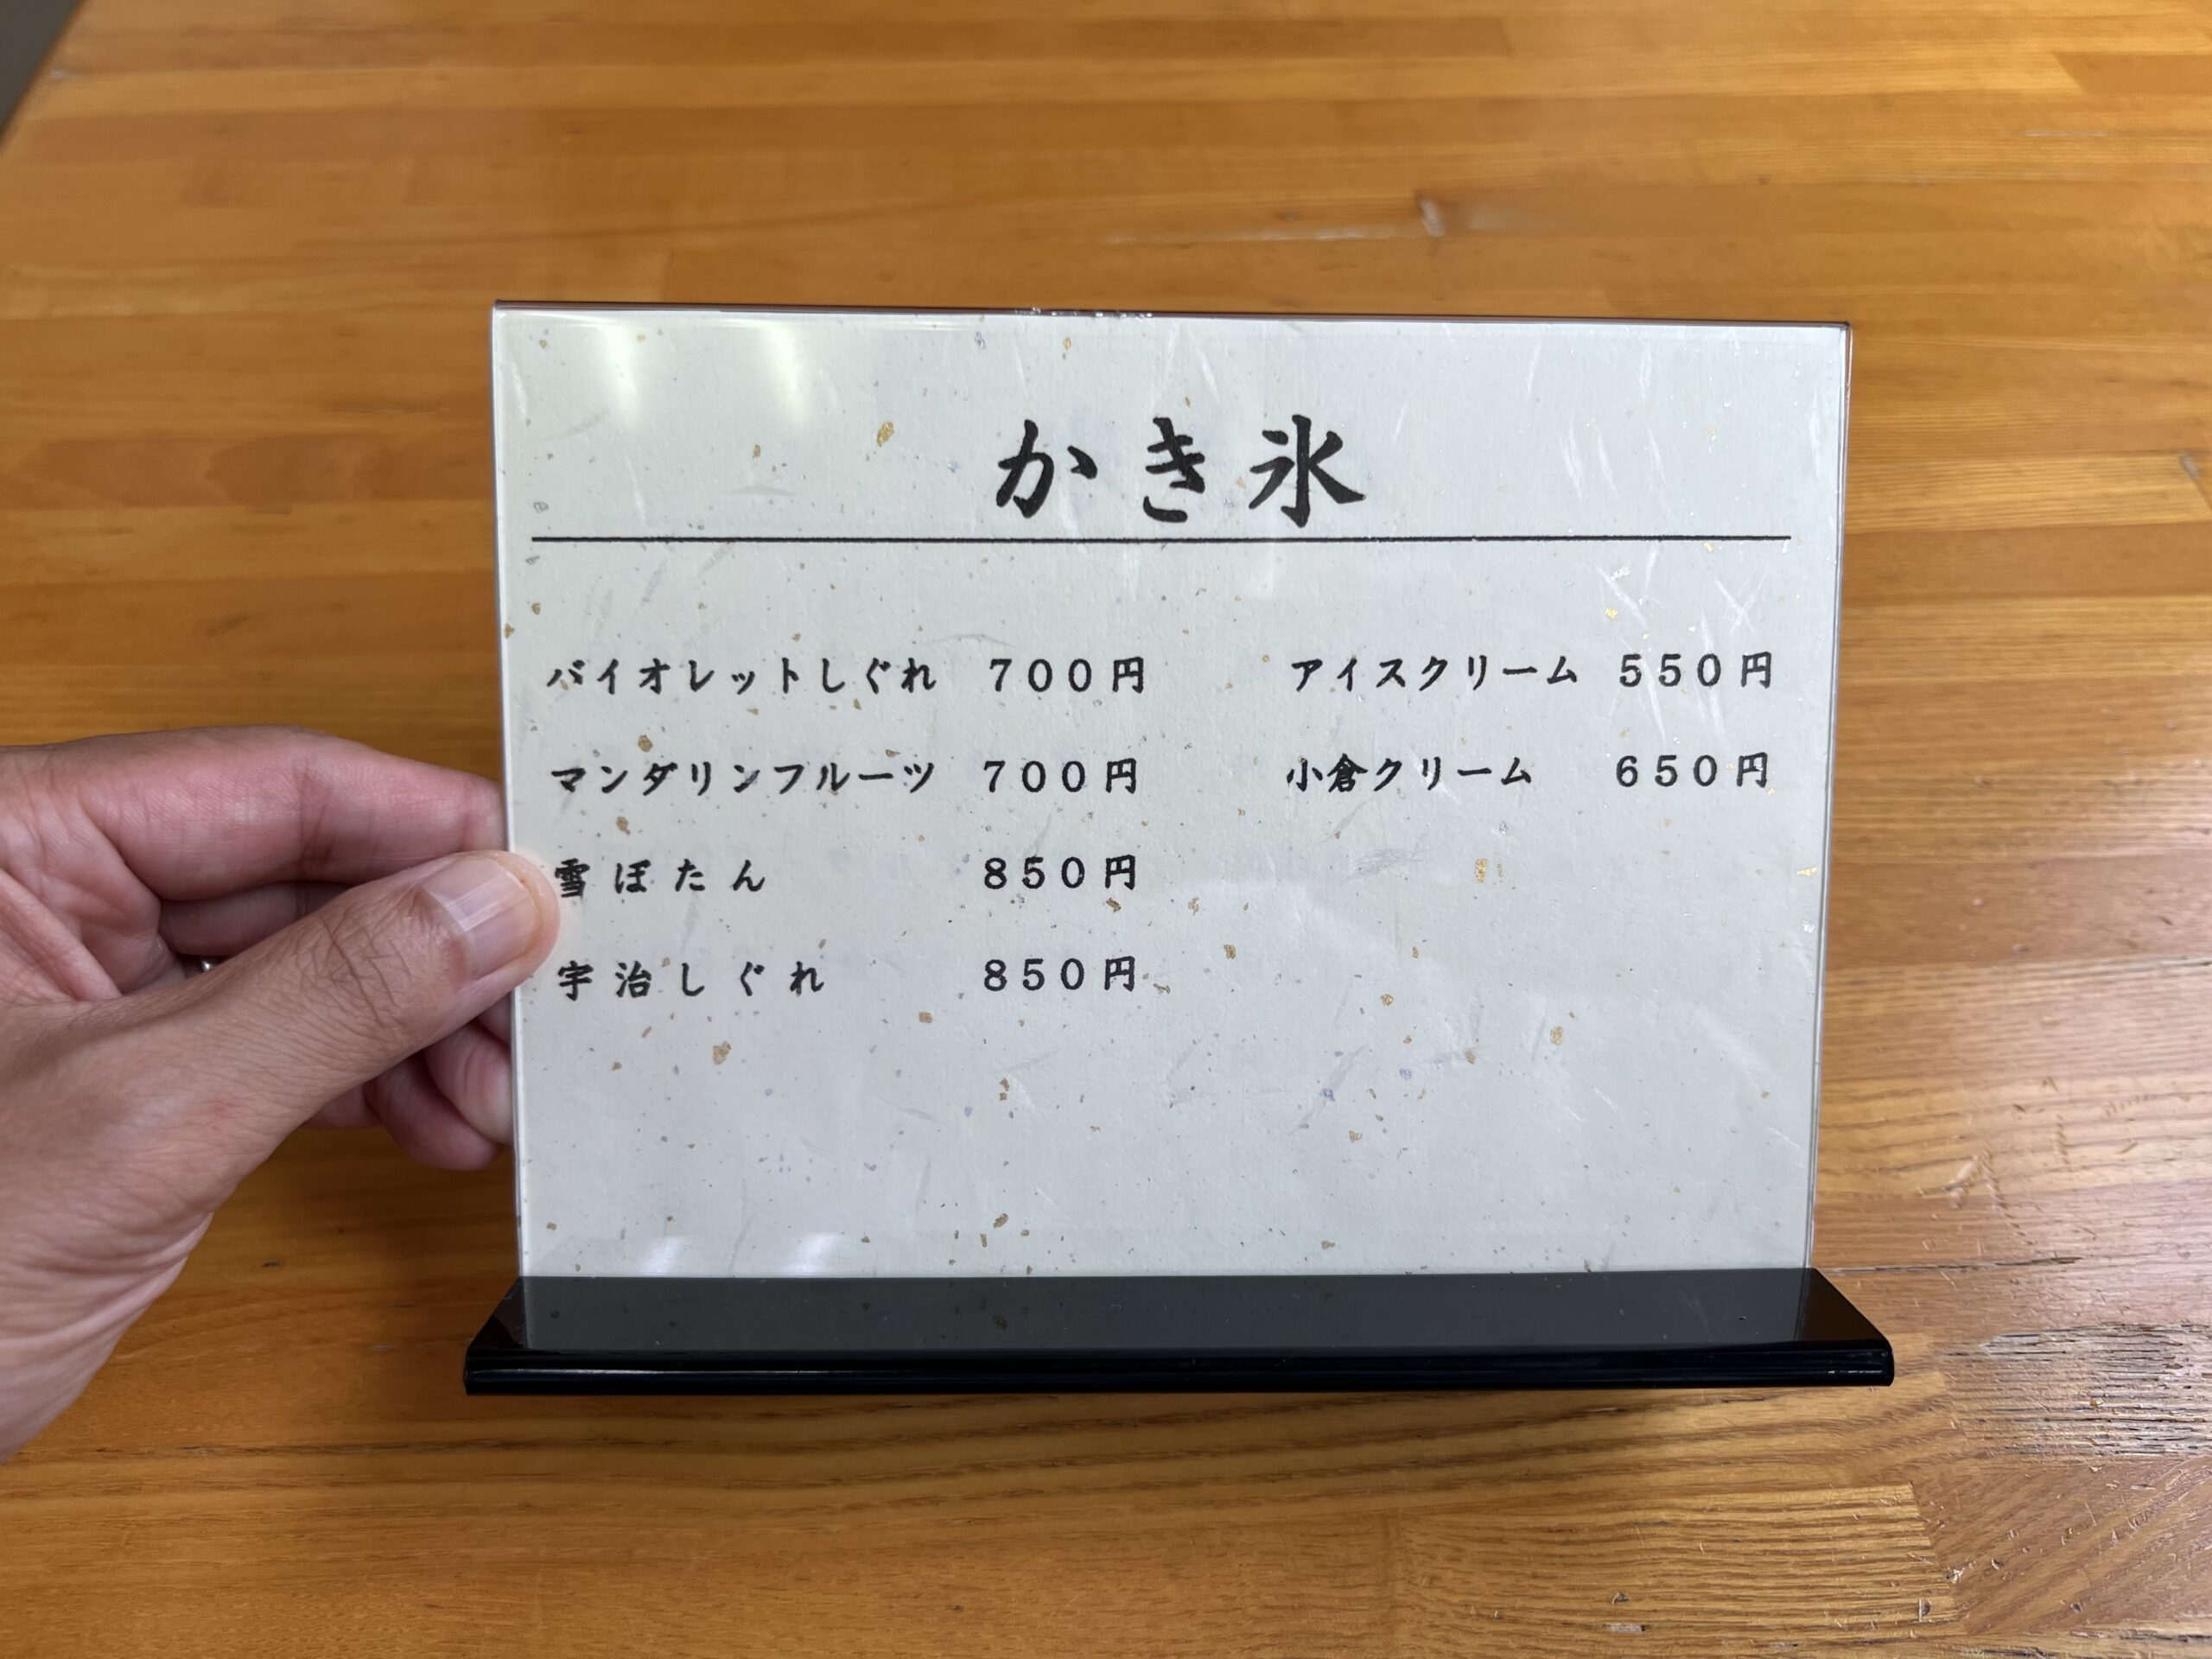 かき氷
バイオレットしぐれ 700円
マンダリンフルーツ 700円
雪ぼたん 850円
宇治しぐれ 850円
アイスクリーム 550円
小倉クリーム 650円